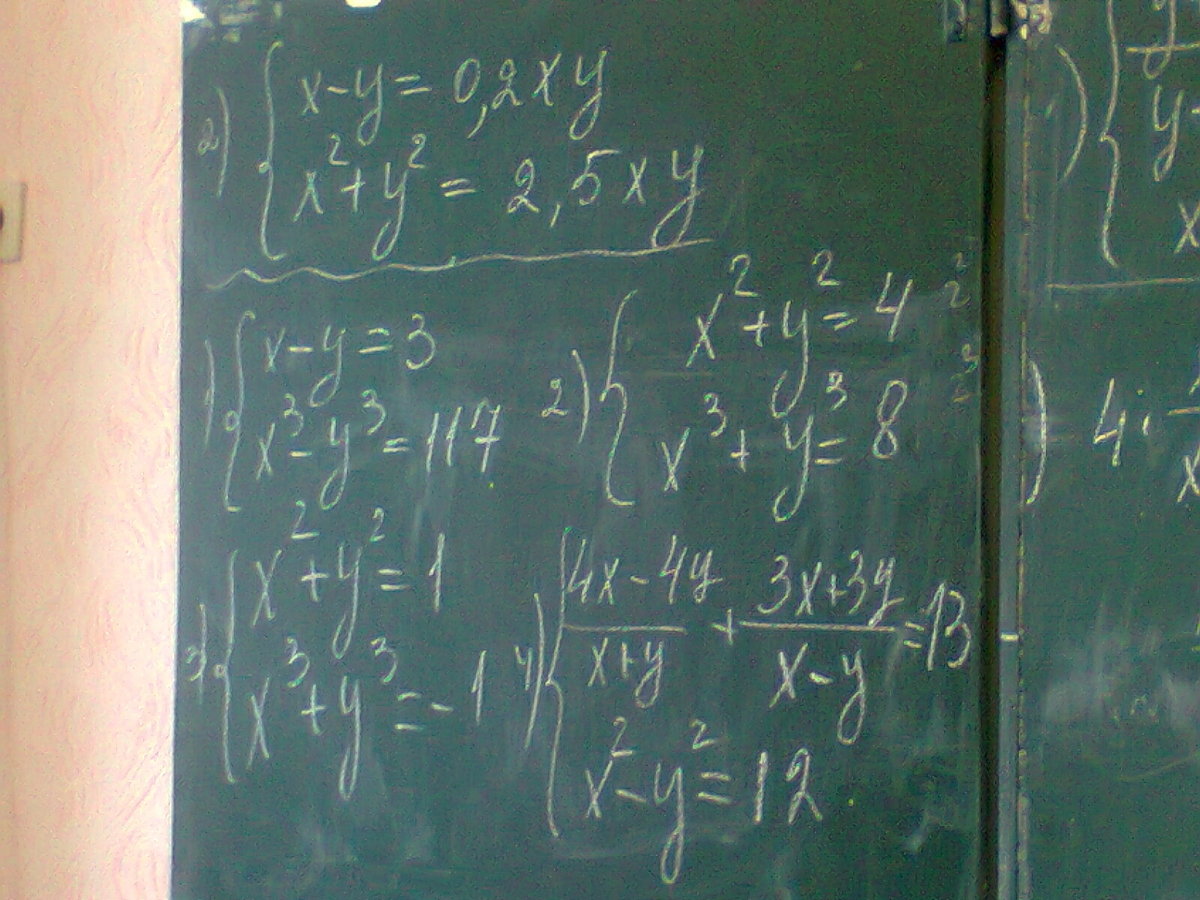 2) { x-y = 0,2xy
x² + y² = 2,5xy
1) { x-y = 3
x³ - y³ = 117
2) { x² + y² = 4
x³ + y³ = 8
3) { x² + y² = 1
x³ + y³ = -1
4) { (4x-4y)/(x+y) + (3x+3y)/(x-y) = 13
x² - y² = 12
) { y
y-
x
) 4·
x